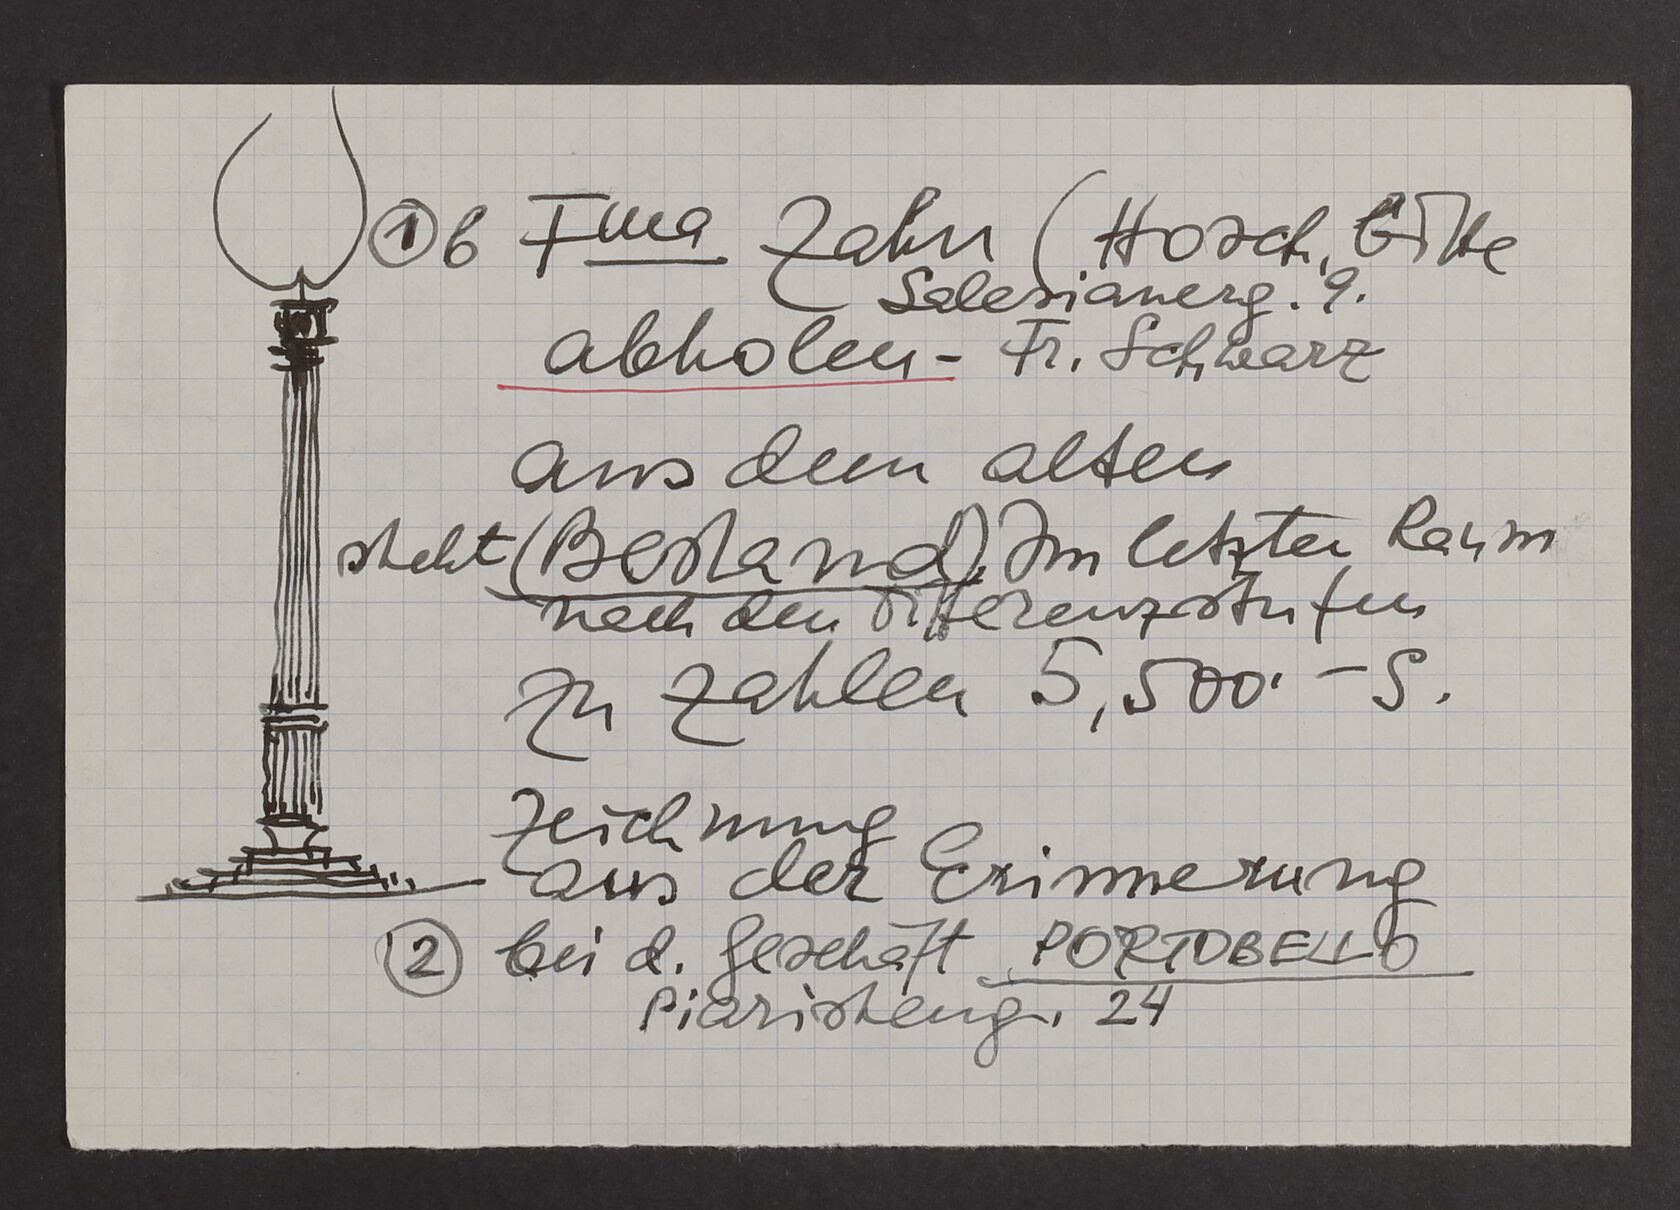 ① b Fma Zahn (Horch,
Salesianerg. 9.
abholen - Fr. Schwarz
aus dem alten
steht (Bestand). Im letzten Raum
nach den Differenzstufen
zu zahlen 5,500.- S.
Zeichnung
aus der Erinnerung
② bei d. Geschäft PORTOBELLO
Piaristeng. 24